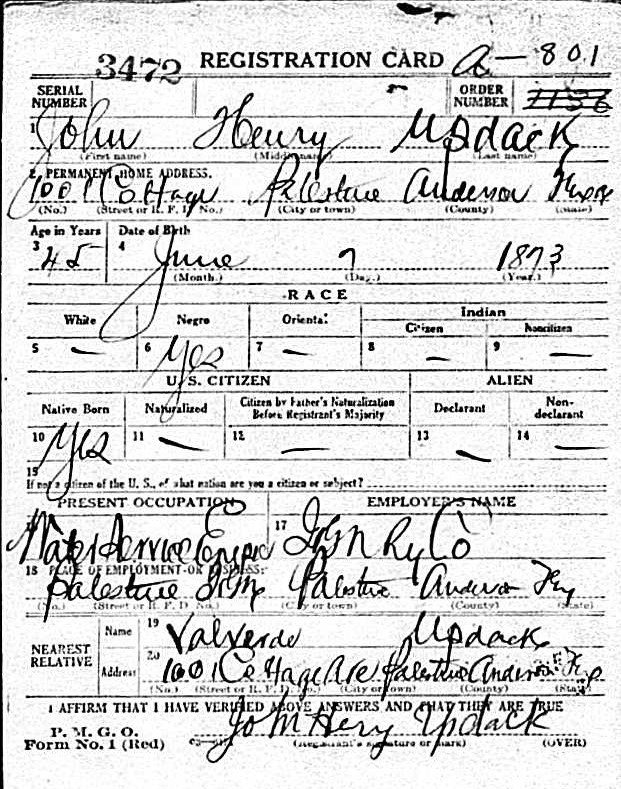 3472 REGISTRATION CARD A—801
SERIAL NUMBER ORDER NUMBER 1136
1 John Henry Updack
(First name) (Middle name) (Last name)
2 PERMANENT HOME ADDRESS.
1001 Cottage Palestine Anderson Texas
(No.) (Street or R. F. D. No.) (City or town) (County) (State)
Age in Years Date of Birth
3 45 4 June 7 1873
(Month.) (Day.) (Year.)
RACE
White Negro Oriental Indian
Citizen Noncitizen
5 — 6 Yes 7 — 8 — 9 —
U. S. CITIZEN ALIEN
Native Born Naturalized Citizen by Father's Naturalization Before Registrant's Majority Declarant Non-declarant
10 Yes 11 — 12 — 13 — 14 —
15
If not a citizen of the U. S., of what nation are you a citizen or subject?
PRESENT OCCUPATION EMPLOYER'S NAME
Water Service 17 I&GN Ry Co
18 PLACE OF EMPLOYMENT OR BUSINESS:
Palestine Palestine Anderson
(No.) (Street or R. F. D. No.) (City or town) (County) (State)
NEAREST RELATIVE
Name 19 Valverde Updack
Address 20 1001 Cottage Ave Palestine Anderson Tex
(No.) (Street or R. F. D. No.) (City or town) (County) (State)
I AFFIRM THAT I HAVE VERIFIED ABOVE ANSWERS AND THAT THEY ARE TRUE
P. M. G. O.
Form No. 1 (Red) John Hery Updack
(Registrant's signature or mark) (OVER)